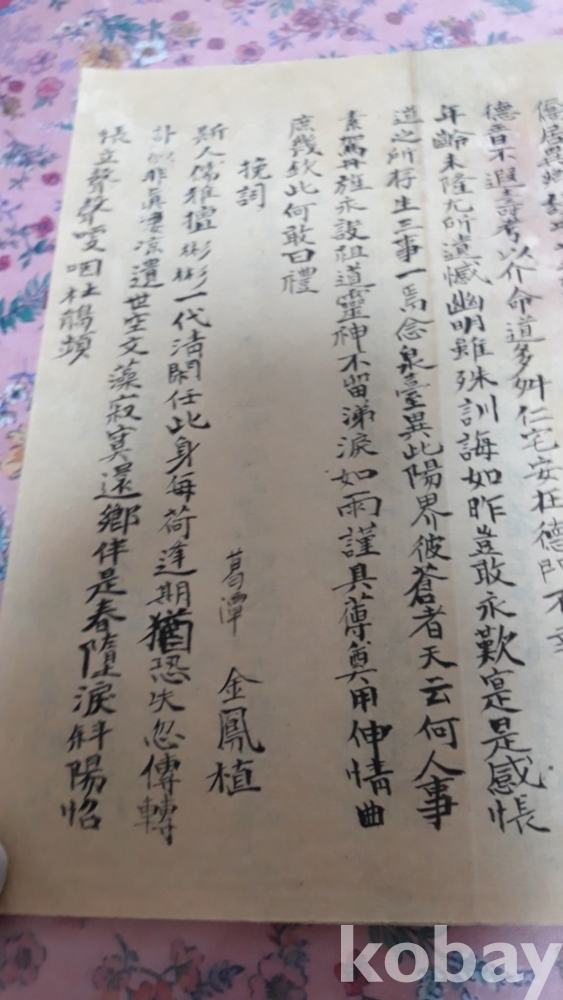 德音不遐壽考以介命道多舛仁宅安在德門不幸
年齡未隆尤所遺憾幽明雖殊訓誨如昨豈敢永歎寔是感悵
道之所存生三事一焉念泉臺異此陽界彼蒼者天云何人事
素丹旌永設祖道靈神不留涕淚如雨謹具薄奠用伸情曲
庶幾欽此何敢曰禮
挽詞
葛潭 金鳳植
斯人儒雅檀彬彬一代清閑任此身每荷逢期猶恐失忽傳轉
訃似非眞凄凉遺世空文藻寂寞還鄉伴是春墮淚斜陽怊
悵立聲聲哽咽杜鵑頻
kobay